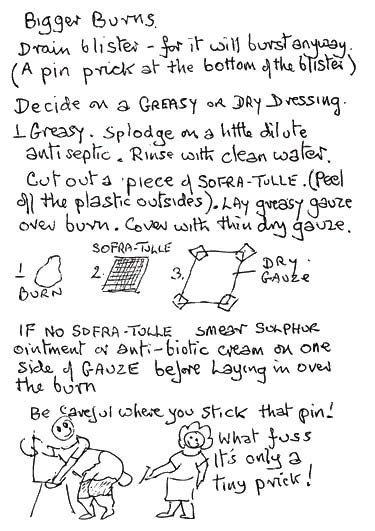 Bigger Burns.
Drain blister - for it will burst anyway.
(A pin prick at the bottom of the blister)
Decide on a GREASY or DRY Dressing.
1 Greasy. Splodge on a little dilute
antiseptic. Rinse with clean water.
Cut out a piece of SOFRA-TULLE. (Peel
off the plastic outsides). Lay greasy gauze
over burn. Cover with thin dry gauze.
SOFRA-TULLE
1
2.
3.
DRY.
GAUZE
BURN
IF NO SOFRA-TULLE SMEAR SULPHUR
ointment or anti-biotic cream on one
side of GAUZE before Laying in over
the burn
Be careful where you stick that pin!
What fuss
It's only a
tiny prick!